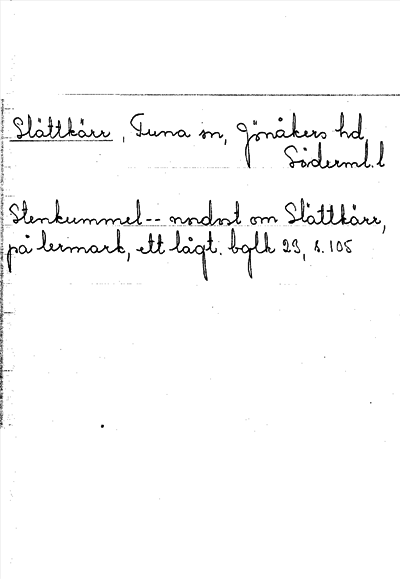 Slättkärr, Tuna sn, Jönåkers hd
Söderml. l
Stenkummel-- nordost om Slättkärr,
på lermark, ett lågt. bglk 23, s. 105